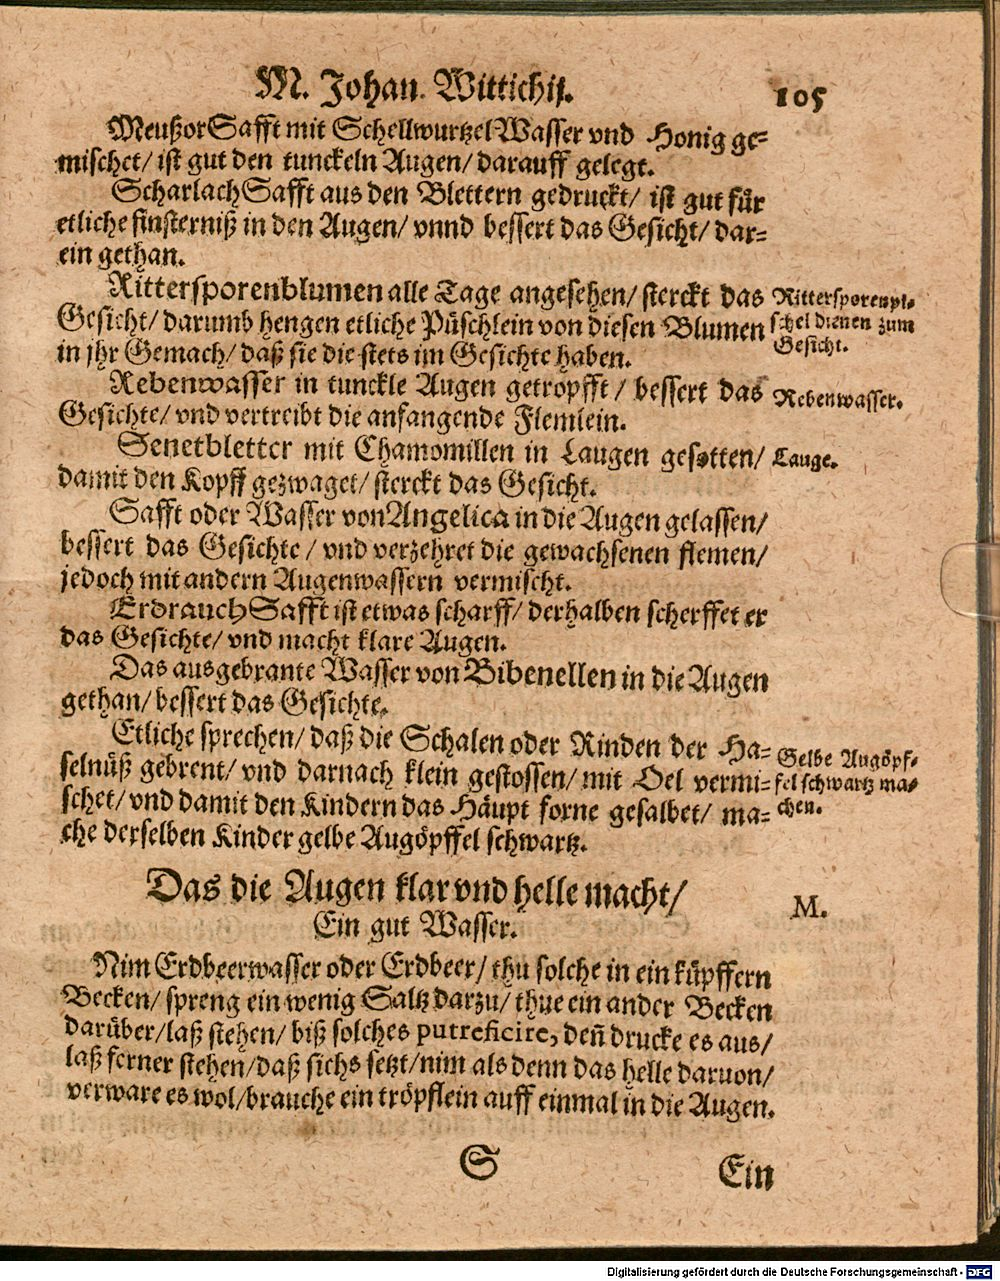 M. Johan. Wittichij.
105
MeußorSafft mit SchellwurtzelWasser vnd Honig ge-
mischet/ ist gut den tunckeln Augen/ darauff gelegt.
ScharlachSafft aus den Blettern gedruckt/ ist gut für
etliche finsterniß in den Augen/ vnnd bessert das Gesicht/ dar-
ein gethan.
Rittersporenblumen alle Tage angesehen/ sterckt das
Gesicht/ darumb hengen etliche Püschlein von diesen Blumen
in jhr Gemach/ daß sie die stets im Gesichte haben.
Rittersporenpü-
schel dienen zum
Gesicht.
Rebenwasser in tunckle Augen getropfft/ bessert das
Gesichte/ vnd vertreibt die anfangende Flemlein.
Rebenwasser.
Senetbletter mit Chamomillen in Laugen gesotten/
damit den Kopff gezwaget/ sterckt das Gesicht.
Lauge.
Safft oder Wasser von Angelica in die Augen gelassen/
bessert das Gesichte/ vnd verzehret die gewachsenen flemen/
jedoch mit andern Augenwassern vermischt.
ErdrauchSafft ist etwas scharff/ derhalben scherffet er
das Gesichte/ vnd macht klare Augen.
Das ausgebrante Wasser von Bibenellen in die Augen
gethan/ bessert das Gesichte.
Etliche sprechen/ daß die Schalen oder Rinden der Ha-
selnüß gebrent/ vnd darnach klein gestossen/ mit Oel vermi-
schet/ vnd damit den Kindern das Häupt forne gesalbet/ ma-
che derselben Kinder gelbe Augöpffel schwartz.
Gelbe Augöpf-
fel schwartz ma-
chen.
Das die Augen klar vnd helle macht/
Ein gut Wasser.
M.
Nim Erdbeerwasser oder Erdbeer/ thu solche in ein küpffern
Becken/ spreng ein wenig Saltz darzu/ thue ein ander Becken
darüber/ laß stehen/ biß solches putreficire, deñ drucke es aus/
laß ferner stehen/ daß sichs setzt/ nim als denn das helle daruon/
verware es wol/ brauche ein tröpflein auff einmal in die Augen.
S
Ein
Digitalisierung gefördert durch die Deutsche Forschungsgemeinschaft - DFG